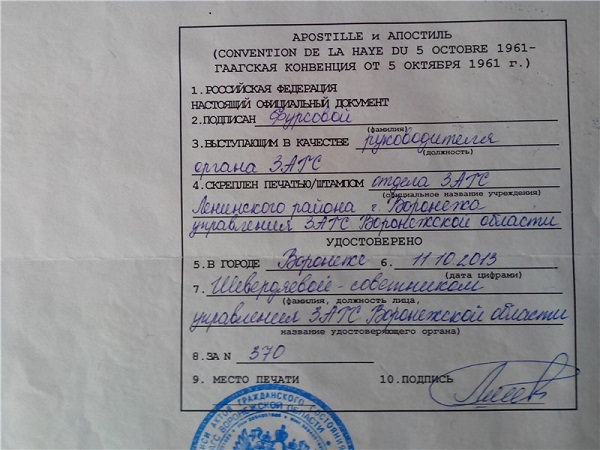 APOSTILLE и АПОСТИЛЬ
(CONVENTION DE LA HAYE DU 5 OCTOBRE 1961-
ГААГСКАЯ КОНВЕНЦИЯ ОТ 5 ОКТЯБРЯ 1961 г.)
1. РОССИЙСКАЯ ФЕДЕРАЦИЯ
НАСТОЯЩИЙ ОФИЦИАЛЬНЫЙ ДОКУМЕНТ
2. ПОДПИСАН Фурсовой
(фамилия)
3. ВЫСТУПАЮЩИМ В КАЧЕСТВЕ руководителя
(должность)
органа ЗАГС
4. СКРЕПЛЕН ПЕЧАТЬЮ/ШТАМПОМ отдела ЗАГС
(официальное название учреждения)
Ленинского района г. Воронежа
управления ЗАГС Воронежской области
УДОСТОВЕРЕНО
5. В ГОРОДЕ Воронеж 6. 11.10.2013
(дата цифрами)
7. Шевердяевой - советником
(фамилия, должность лица,
управления ЗАГС Воронежской области
название удостоверяющего органа)
8. ЗА N 370
9. МЕСТО ПЕЧАТИ 10. ПОДПИСЬ
АКТОВ ГРАЖДАНСКОГО СОСТОЯНИЯ
ЗАГС ВОРОНЕЖСКОЙ ОБЛАСТИ